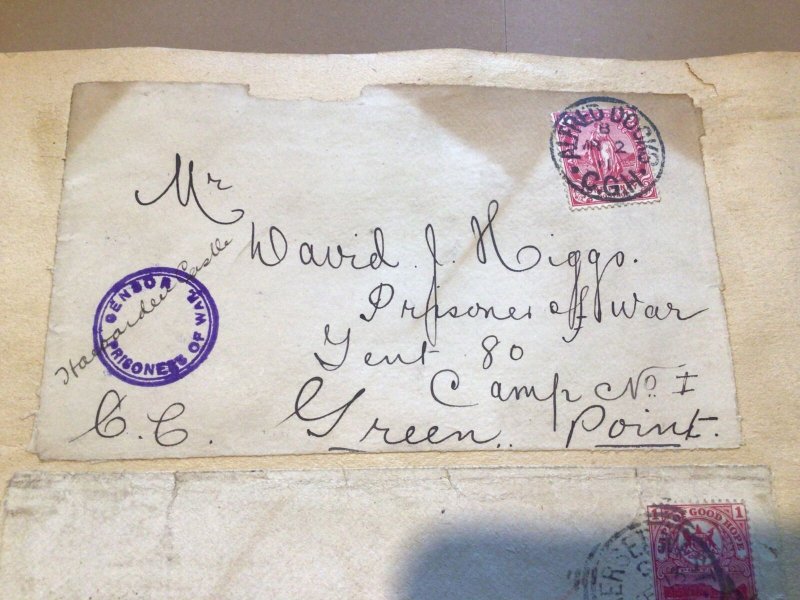 ALFRED DOCKS
C.G.H.
Mr
David J. Higgs.
Prisoner of War
Tent 80
Camp No. I
Green Point.
C.C.
Castle
CENSOR
PRISONERS OF WAR
1 OF GOOD HOPE 1